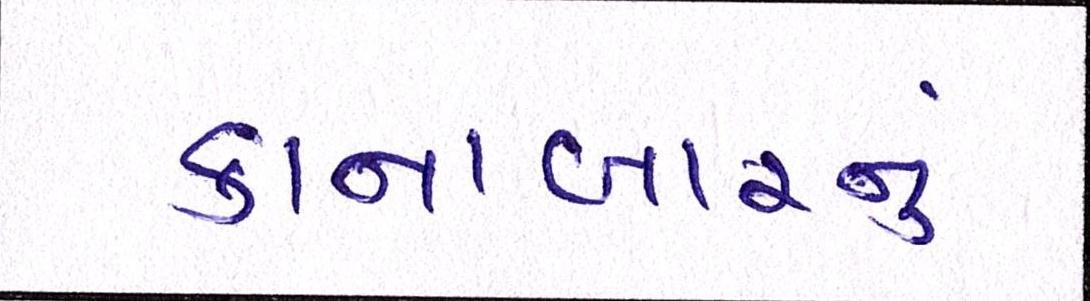 કાનાબારનું